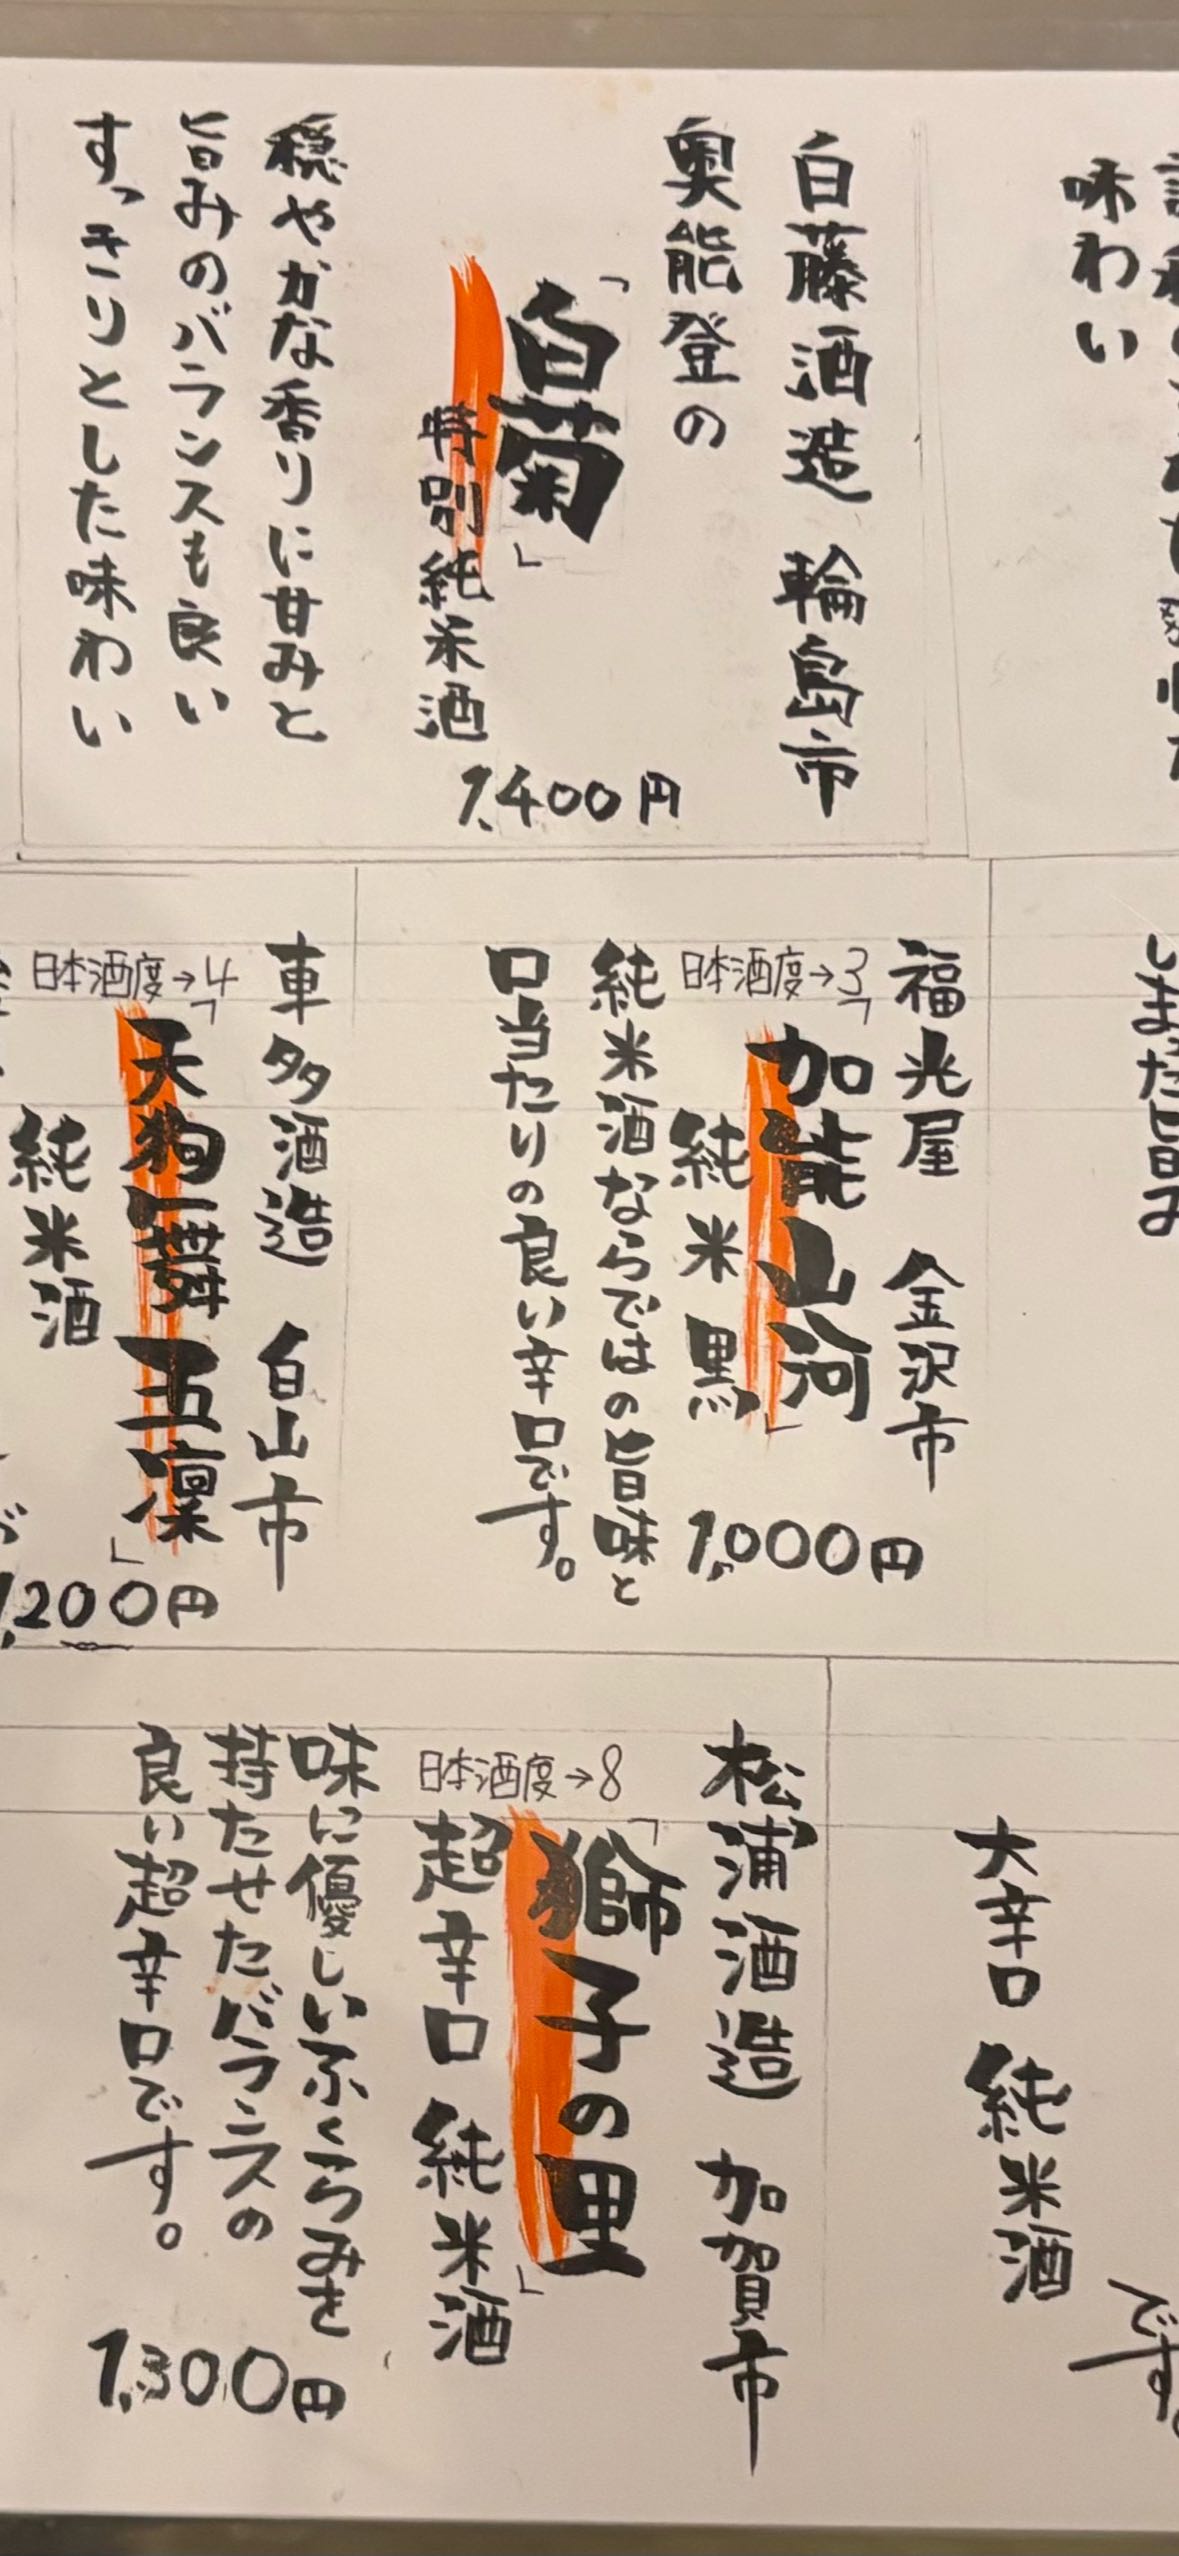 味わい
白藤酒造 輪島市
奥能登の
「白菊」
特別純米酒
1,400円
穏やかな香りに甘みと
旨みのバランスも良い
すっきりとした味わい
しまった旨み
福光屋 金沢市
日本酒度→3
「加能山河」
純米 黒
1,000円
純米酒ならではの旨味と
口当たりの良い辛口です。
車多酒造 白山市
日本酒度→4
「天狗舞 五凛」
純米酒
1,200円
です。
大辛口 純米酒
松浦酒造 加賀市
日本酒度→8
「獅子の里」
超辛口 純米酒
味に優しいふくらみを
持たせたバランスの
良い超辛口です。
1,300円